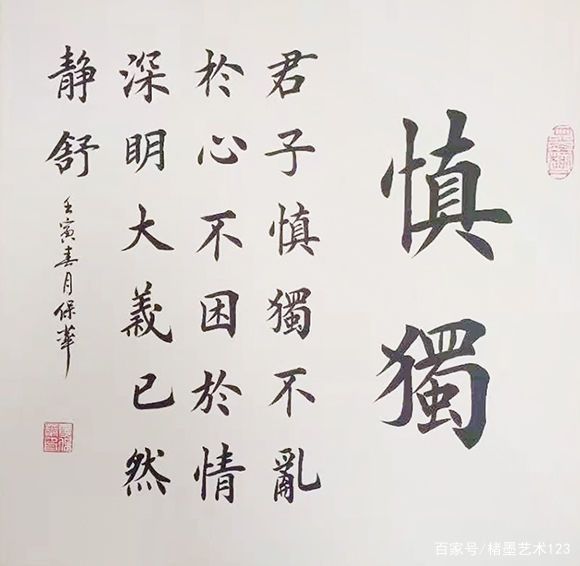 慎獨
君子慎獨不亂
於心不困於情
深明大義已然
静舒
壬寅春月保華
百家号/楮墨艺术123